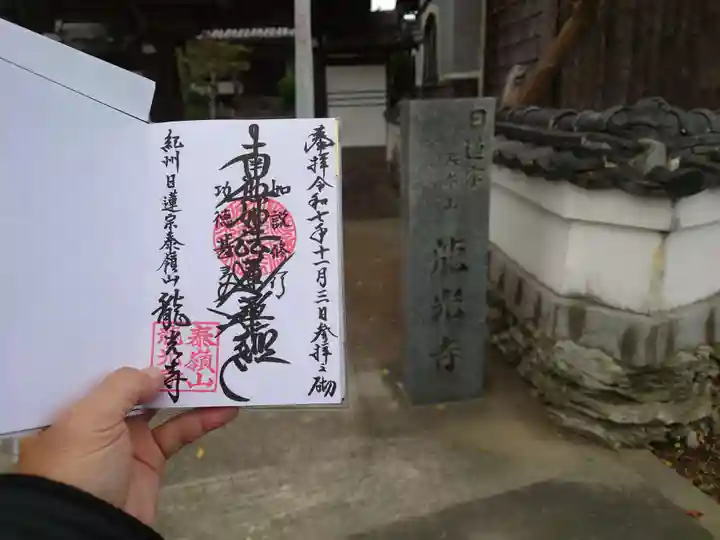 奉拝令和七年十一月三日参拝之砌
如説修行
南無妙法蓮華経
功徳甚多
紀州日蓮宗泰嶺山龍光寺
泰嶺山
龍光寺
日蓮宗
泰嶺山
龍光寺